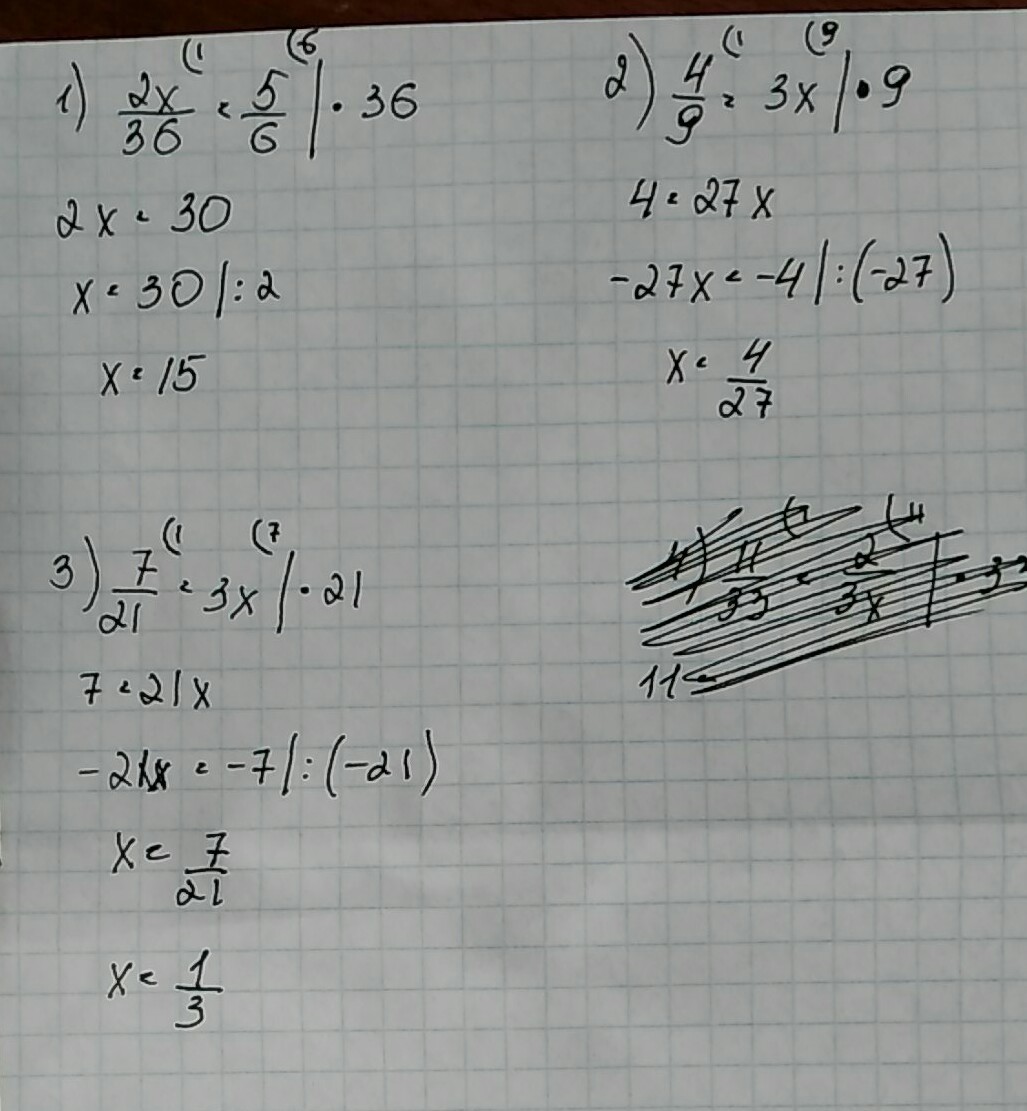 1) 2x/36 (1 = 5/6 (6 | · 36
2x = 30
x = 30 | : 2
x = 15
2) 4/9 (1 = 3x (9 | · 9
4 = 27x
-27x = -4 | : (-27)
x = 4/27
3) 7/21 (1 = 3x (7 | · 21
7 = 21x
-21x = -7 | : (-21)
x = 7/21
x = 1/3
11